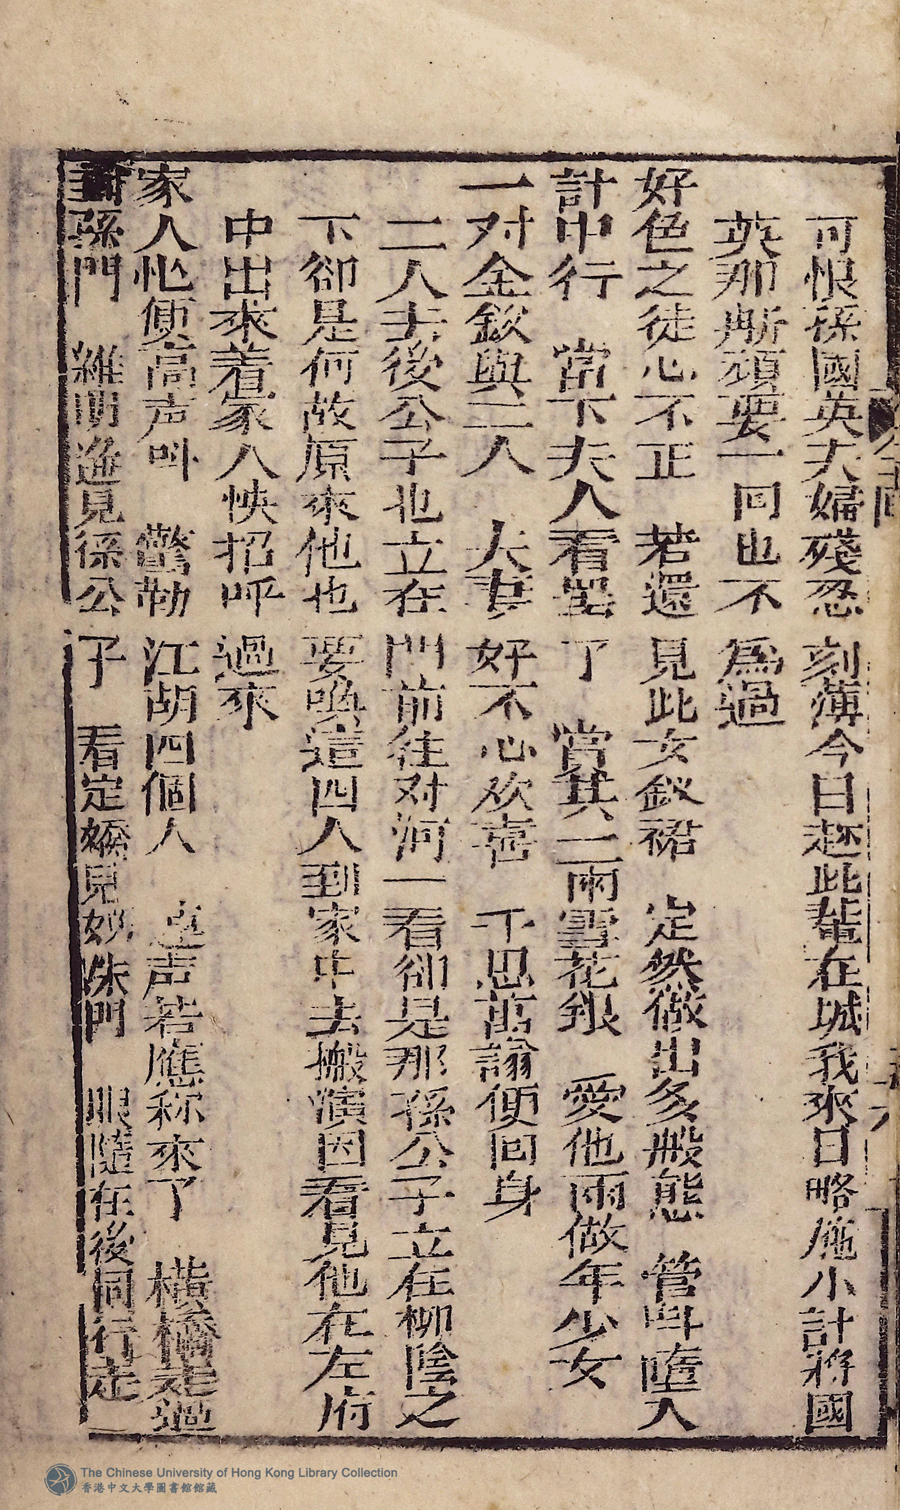 可恨孫國英夫婦殘忍刻薄今日趂此輩在城我來日略施小計將國
英那厮頑耍一回也不為過
好色之徒心不正 若還見此女釵裙 定然做出多般態 管呌墮入
計中行 當下夫人看罢了 賞其二兩雪花銀 愛他兩做年少女
一对金釵與二人 夫妻好不心欢喜 千思萬諭便回身
二人去後公子也立在門前往对河一看卻是那孫公子立在柳陰之
下卻是何故原來他也要喚這四人到家中去搬演因看見他在左府
中出來着家人怏招呼過來
家人忙便高声呌 驚動江胡四個人 連声若應称來了 橫橋走過
封孫門 維明遙見孫公子 看定嬌兒妙姝門 眼隨在後同行走
The Chinese University of Hong Kong Library Collection
香港中文大學圖書館館藏